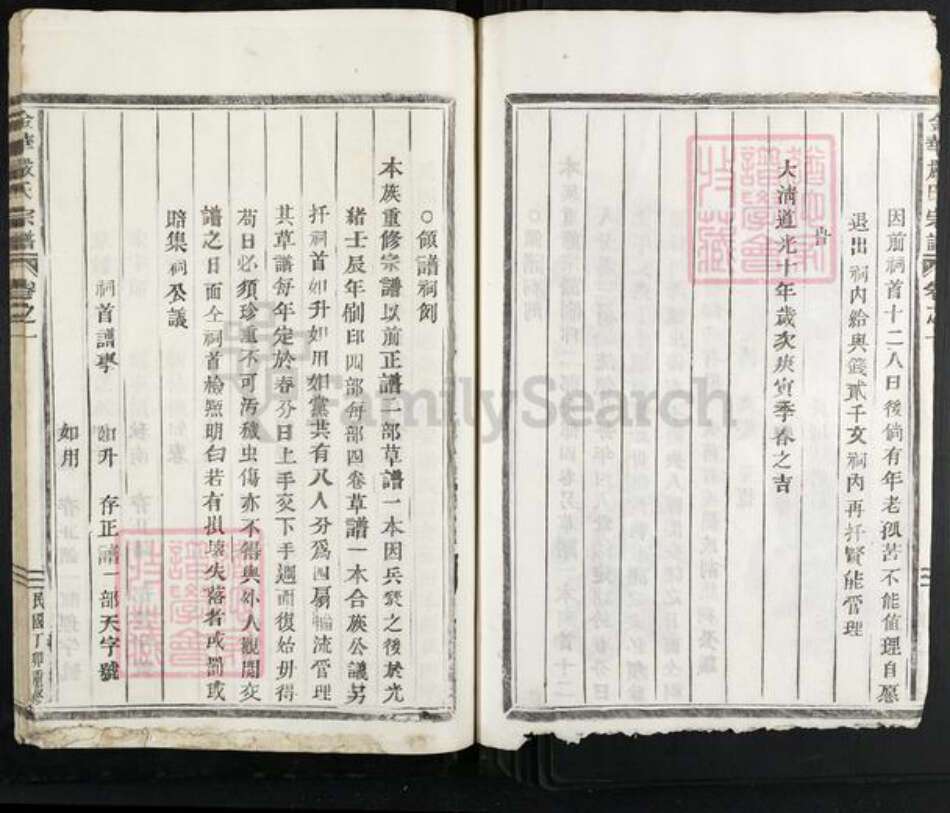 金華嚴氏宗譜
因前祠首十二人日後倘有年老孤苦不能值理自愿
退出祠內給與錢貳千文祠內再扦賢能管理
旹
大清道光十年歲次庚寅季春之吉
○領譜祠例
本族重修宗譜以前正譜二部草譜一本因兵燹之後於光
緒壬辰年刷印四部每部四卷草譜一本合族公議另
扦祠首如升如用如黨共有八人分爲四扇輪流管理
其草譜每年定於春分日上手交下手週而復始毋得
苟日必須珍重不可污穢虫傷亦不得與外人觀閱交
譜之日面仝祠首檢點明白若有損壞失落者或罰或
賠集祠公議
祠首譜擧 如升 存正譜一部天字號
如用
金華嚴氏宗譜 卷之一
民國丁卯重修
FamilySearch